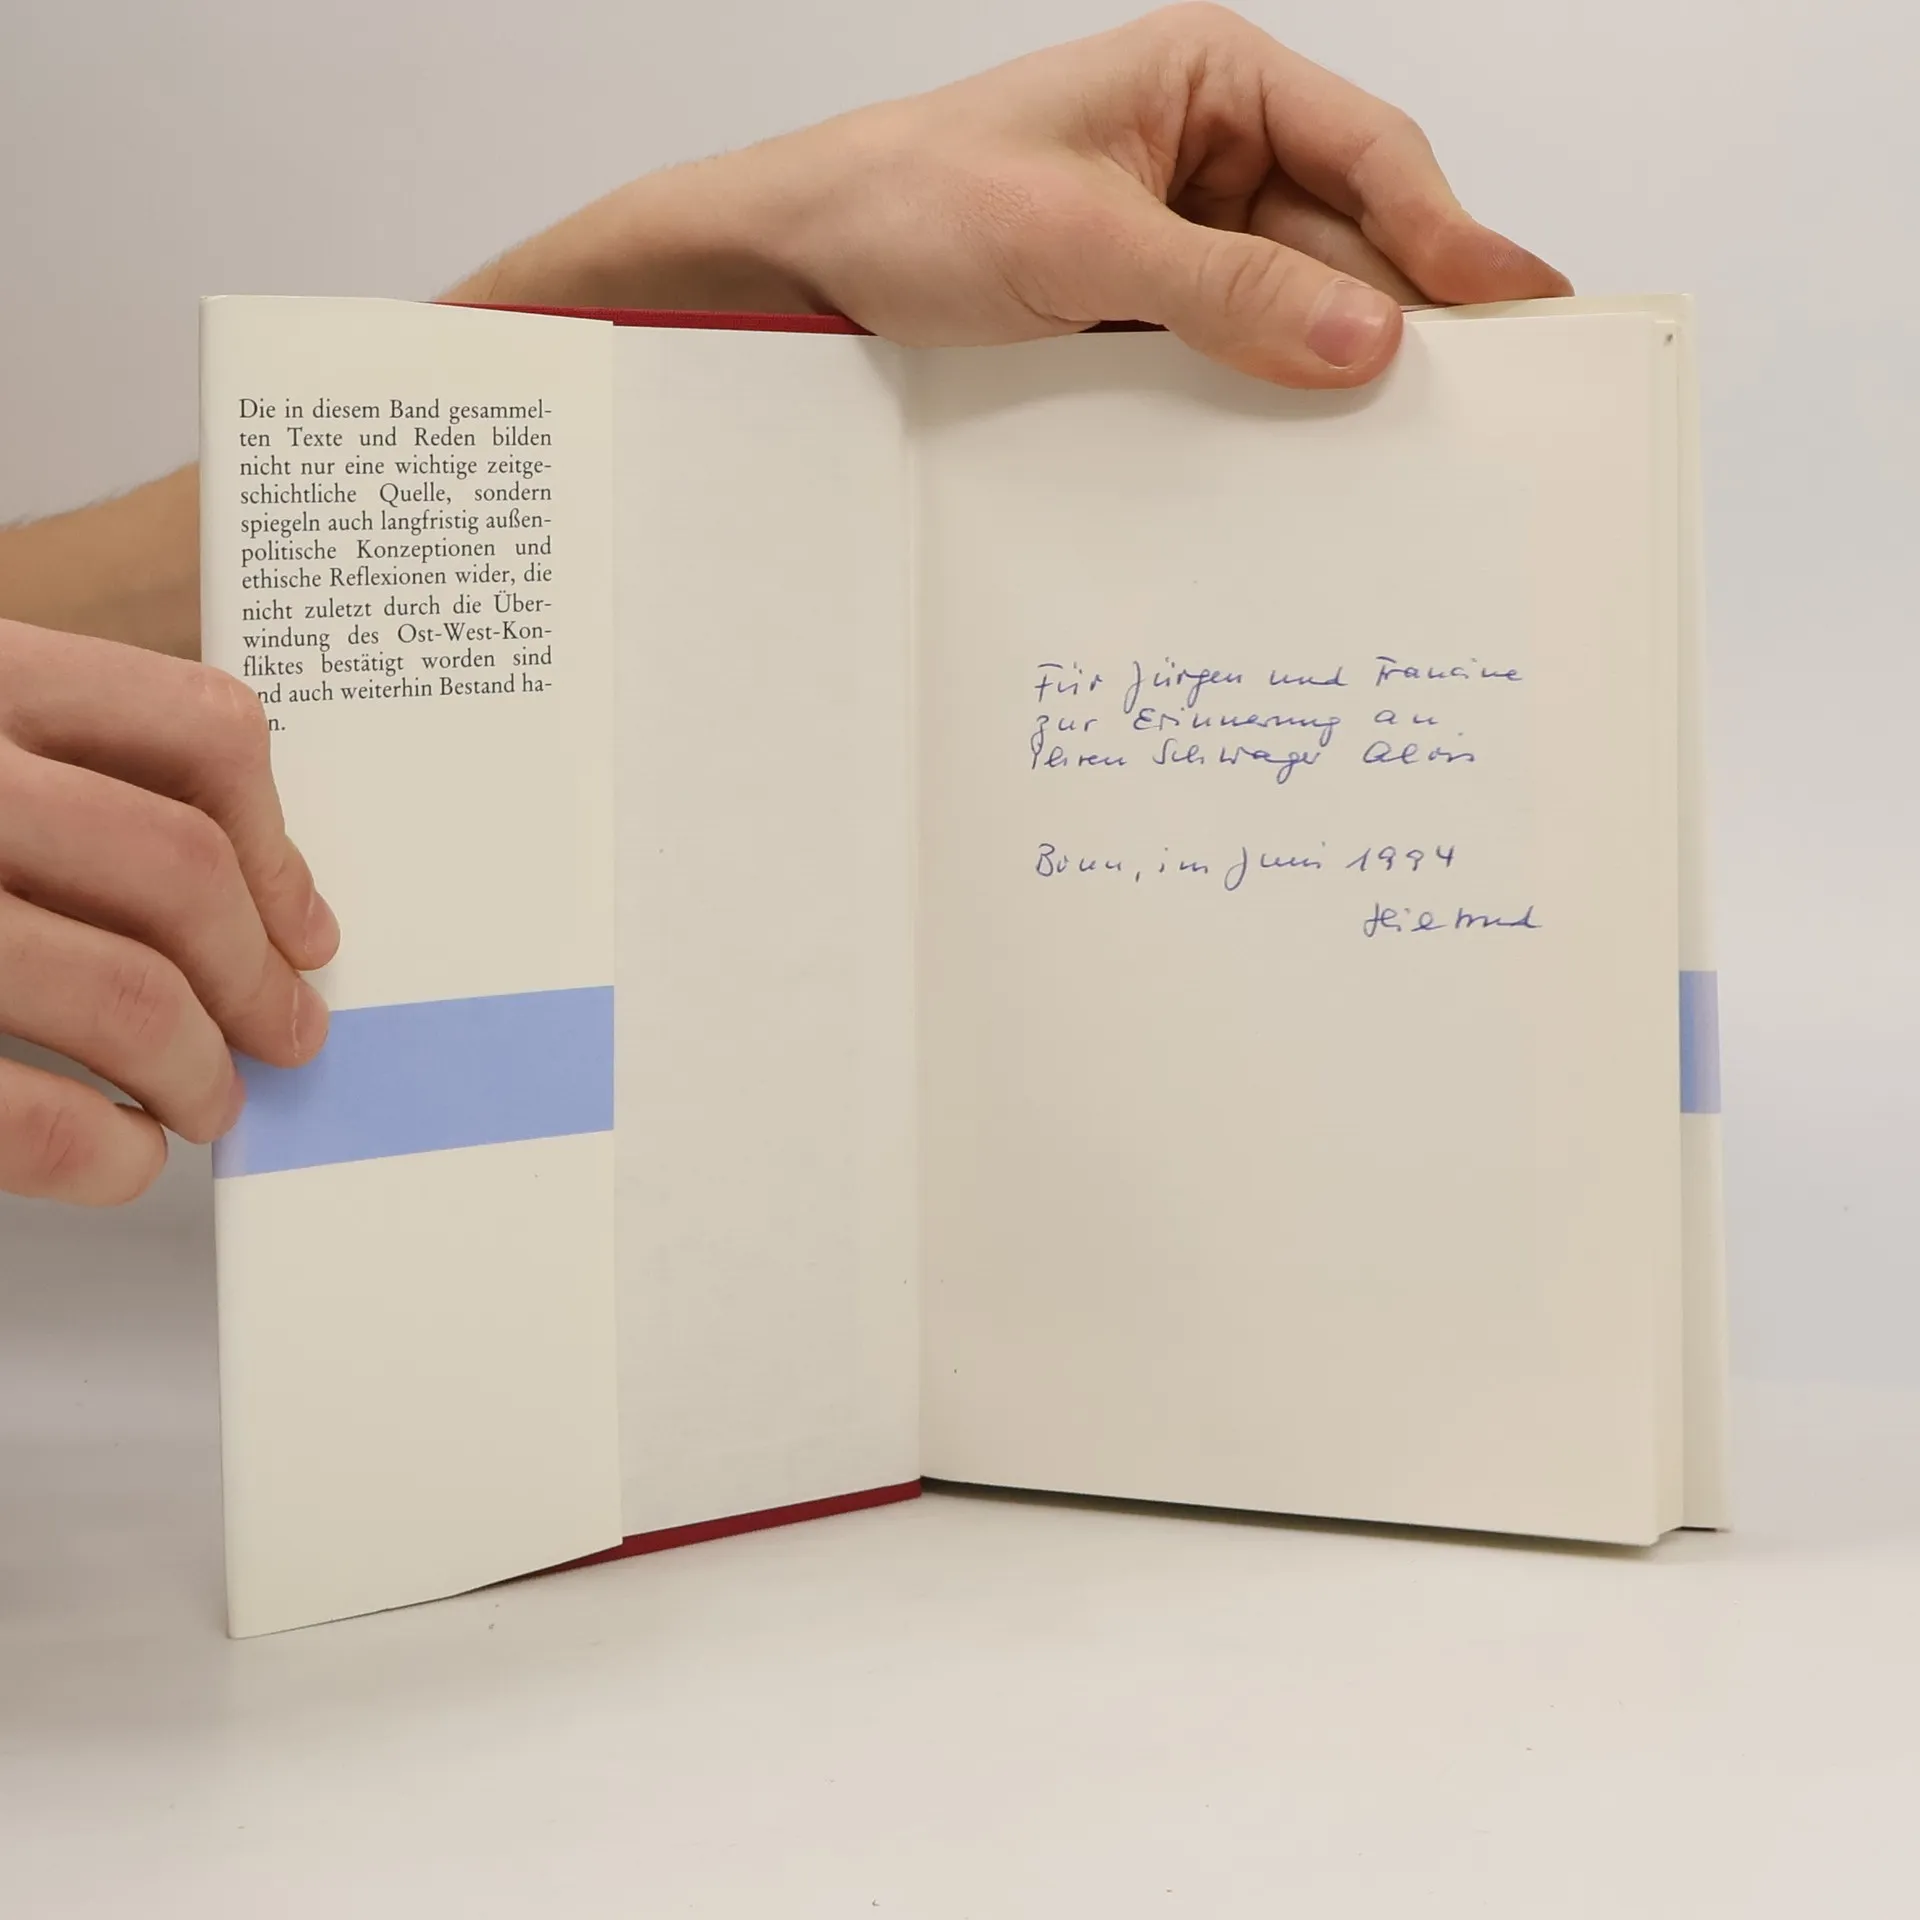 Die in diesem Band gesammel-
ten Texte und Reden bilden
nicht nur eine wichtige zeitge-
schichtliche Quelle, sondern
spiegeln auch langfristig außen-
politische Konzeptionen und
ethische Reflexionen wider, die
nicht zuletzt durch die Über-
windung des Ost-West-Kon-
fliktes bestätigt worden sind
nd auch weiterhin Bestand ha-
n.
Für Jürgen und Francine
zur Erinnerung an
Ihren Schwager Alois
Bonn, im Juni 1994
Hiltrud